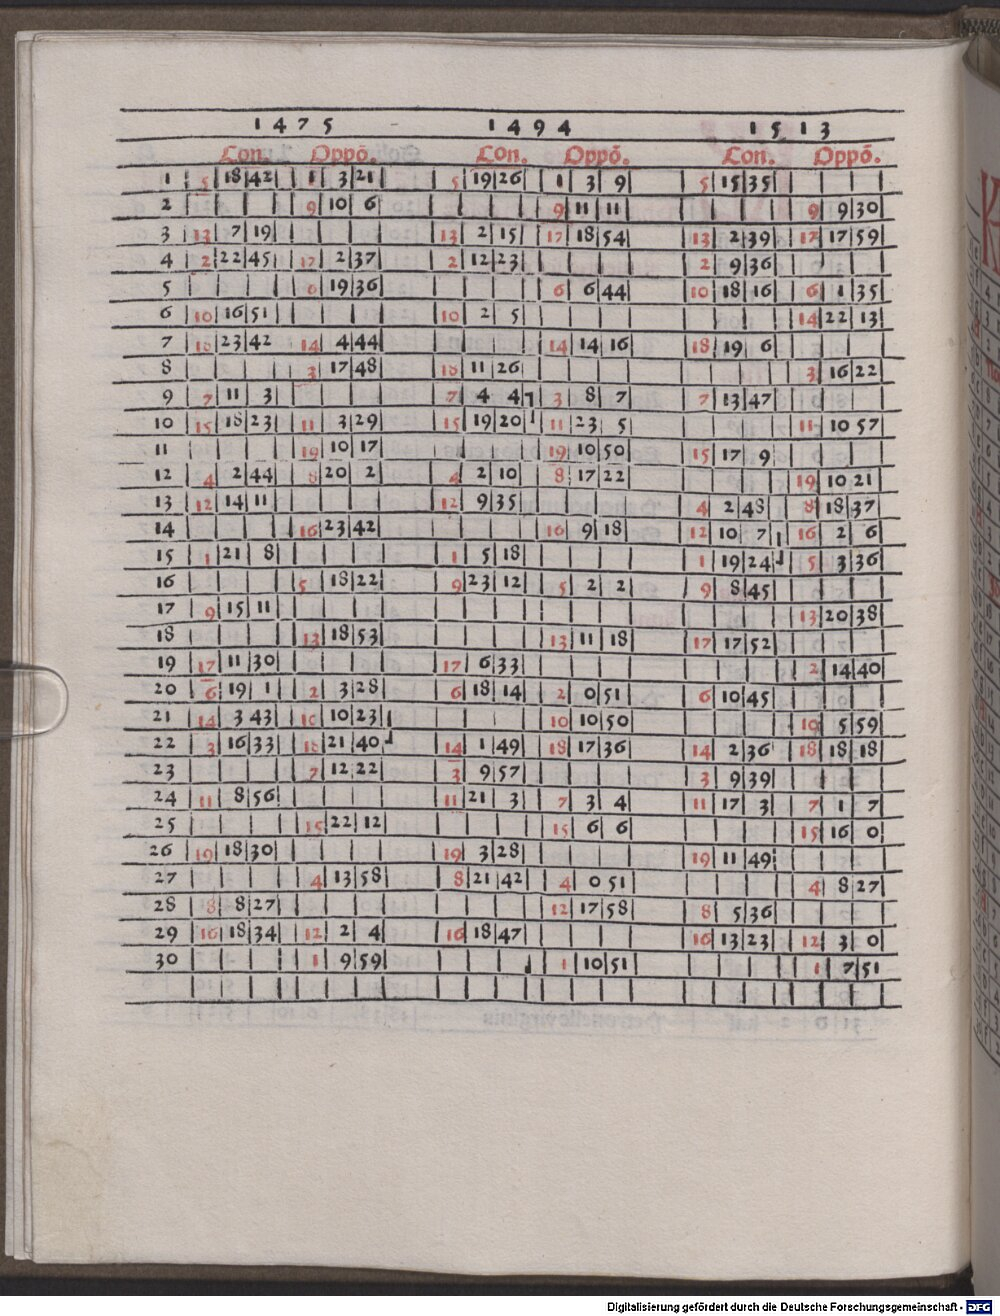 1475 1494 1513
Con. Oppō. Con. Oppō. Con. Oppō.
1 5 18 42 1 3 21 5 19 26 1 3 9 5 15 35
2 9 10 6 9 11 11 9 9 30
3 13 7 19 13 2 15 17 18 54 13 2 39 17 17 59
4 2 22 45 17 2 37 2 12 23 2 9 36
5 6 19 36 6 6 44 10 18 16 6 1 35
6 10 16 51 10 2 5 14 22 13
7 18 23 42 14 4 44 14 14 16 18 19 6
8 3 17 48 18 11 26 3 16 22
9 7 11 3 7 4 47 3 8 7 7 13 47
10 15 18 23 11 3 29 15 19 20 11 23 5 11 10 57
11 19 10 17 19 10 50 15 17 9
12 4 2 44 8 20 2 4 2 10 8 17 22 19 10 21
13 12 14 11 12 9 35 4 2 48 8 18 37
14 16 23 42 16 9 18 12 10 7 16 2 6
15 1 21 8 1 5 18 1 19 24 5 3 36
16 5 18 22 9 23 12 5 2 2 9 8 45
17 9 15 11 13 20 38
18 13 18 53 13 11 18 17 17 52
19 17 11 30 17 6 33 2 14 40
20 6 19 1 2 3 28 6 18 14 2 0 51 6 10 45
21 14 3 43 10 10 23 10 10 50 10 5 59
22 3 16 33 18 21 40 14 1 49 18 17 36 14 2 36 18 18 18
23 7 12 22 3 9 57 3 9 39
24 11 8 56 11 21 3 7 3 4 11 17 3 7 1 7
25 15 22 12 15 6 6 15 16 0
26 19 18 30 19 3 28 19 11 49
27 4 13 58 8 21 42 4 0 51 4 8 27
28 8 8 27 12 17 58 8 5 36
29 16 18 34 12 2 4 16 18 47 16 13 23 12 3 0
30 1 9 59 1 10 51 1 7 51
Digitalisierung gefördert durch die Deutsche Forschungsgemeinschaft - DFG